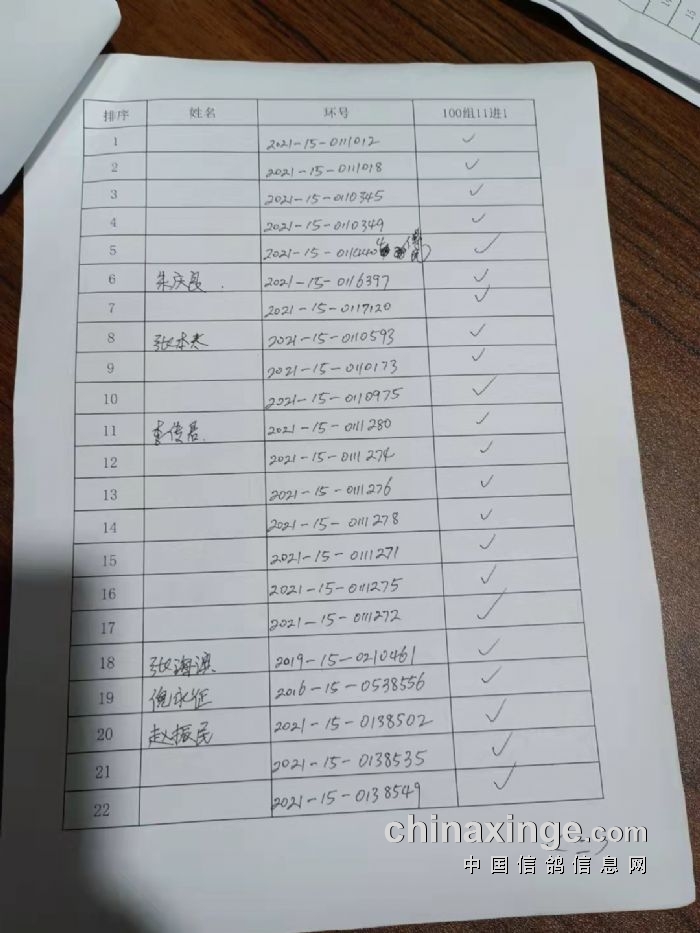 排序 姓名 环号 100组11进1
1 2021-15-0111012 ✓
2 2021-15-0111018 ✓
3 2021-15-0110345 ✓
4 2021-15-0110349 ✓
5 2021-15- ✓
6 朱庆良 2021-15-0116397 ✓
7 2021-15-0117120 ✓
8 张本夫 2021-15-0110593 ✓
9 2021-15-0110173 ✓
10 2021-15-0110975 ✓
11 李俊君 2021-15-0111280 ✓
12 2021-15-0111274 ✓
13 2021-15-0111276 ✓
14 2021-15-0111278 ✓
15 2021-15-0111271 ✓
16 2021-15-0111275 ✓
17 2021-15-0111272 ✓
18 张海滨 2019-15-0210461 ✓
19 倪永征 2016-15-0538556 ✓
20 赵振民 2021-15-0138502 ✓
21 2021-15-0138535 ✓
22 2021-15-0138549 ✓
chinaxinge.com
中国信鸽信息网